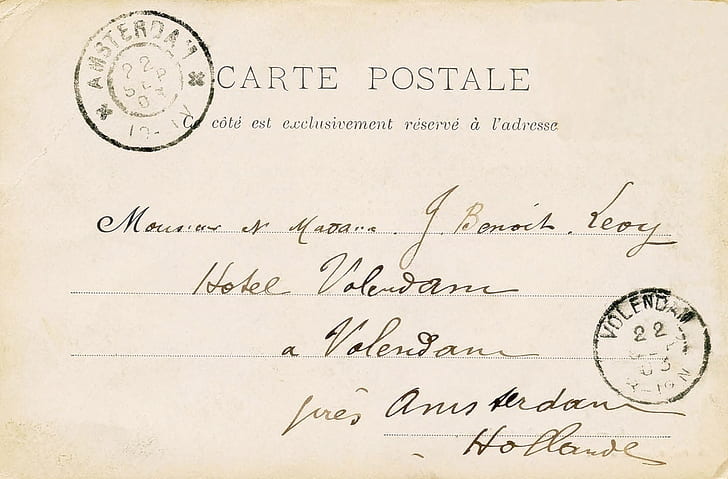 AMSTERDAM
22
CARTE POSTALE
Ce côté est exclusivement réservé à l'adresse
Monsieur et Madame J. Benoit. Levy
Hotel Volendam
a Volendam
VOLENDAM
22
près Amsterdam
Hollande